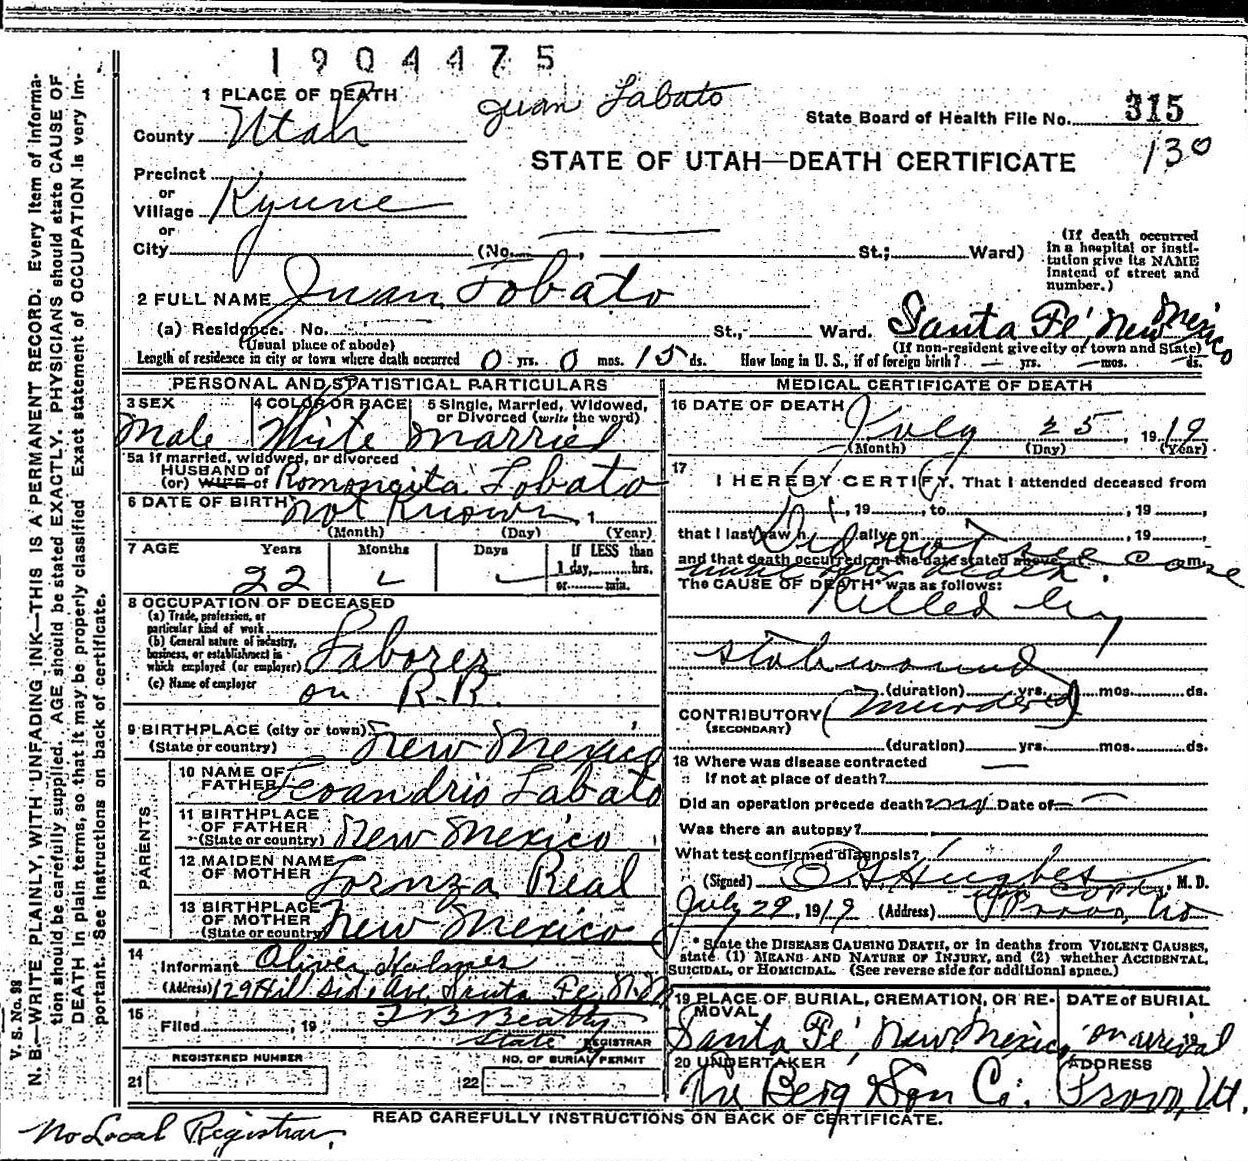 1904475
1 PLACE OF DEATH
Juan Labato
State Board of Health File No. 315
130
County Utah
STATE OF UTAH—DEATH CERTIFICATE
Precinct
or
Village Kyune
or
City (No. St.; Ward)
(If death occurred in a hospital or institution give its NAME instead of street and number.)
2 FULL NAME Juan Lobato
(a) Residence. No. St., Ward. Santa Fe, New Mexico
(Usual place of abode) (If non-resident give city or town and State)
Length of residence in city or town where death occurred 0 yrs. 0 mos. 15 ds. How long in U. S., if of foreign birth? — yrs. — mos. ds.
PERSONAL AND STATISTICAL PARTICULARS
3 SEX Male
4 COLOR OR RACE White
5 Single, Married, Widowed, or Divorced (write the word) Married
5a If married, widowed, or divorced
HUSBAND of
(or) WIFE of Romongita Lobato
6 DATE OF BIRTH not Known, 1
(Month) (Day) (Year)
7 AGE Years Months Days If LESS than
1 day, hrs.
or min.
22
8 OCCUPATION OF DECEASED
(a) Trade, profession, or
particular kind of work
(b) General nature of industry,
business, or establishment in
which employed (or employer) Laborer
(c) Name of employer on R.R.
9 BIRTHPLACE (city or town)
(State or country) New Mexico
PARENTS
10 NAME OF
FATHER Leoandrio Labato
11 BIRTHPLACE
OF FATHER
(State or country) New Mexico
12 MAIDEN NAME
OF MOTHER Real
13 BIRTHPLACE
OF MOTHER
(State or country) New Mexico
14
Informant Oliver Holmes
(Address) Ave Santa Fe, N.M
15
Filed , 19 Beatty
State REGISTRAR
REGISTERED NUMBER NO. OF BURIAL PERMIT
21 22
MEDICAL CERTIFICATE OF DEATH
16 DATE OF DEATH
July 25, 1919
(Month) (Day) (Year)
17
I HEREBY CERTIFY, That I attended deceased from
, 19 , to , 19 ,
that I last saw h alive on , 19 ,
Did not see case
and that death occurred, on the date stated above, at m.
until after death.
The CAUSE OF DEATH* was as follows:
Killed by
stab wound
(duration) yrs. mos. ds.
CONTRIBUTORY (Murdered)
(SECONDARY)
(duration) yrs. mos. ds.
18 Where was disease contracted
if not at place of death?
Did an operation precede death? Date of
Was there an autopsy?
What test confirmed diagnosis?
(Signed) Hughes, M. D.
July 29, 1919 (Address) Provo, Ut
* State the DISEASE CAUSING DEATH, or in deaths from VIOLENT CAUSES,
state (1) MEANS AND NATURE OF INJURY, and (2) whether ACCIDENTAL,
SUICIDAL, or HOMICIDAL. (See reverse side for additional space.)
19 PLACE OF BURIAL, CREMATION, OR REMOVAL
Santa Fe, New Mexico
DATE of BURIAL
on arrival
20 UNDERTAKER
The Berg Son Co.
ADDRESS
Provo, Ut.
READ CAREFULLY INSTRUCTIONS ON BACK OF CERTIFICATE.
No Local Registrar.
V. S. No. 98
N. B.—WRITE PLAINLY, WITH UNFADING INK—THIS IS A PERMANENT RECORD. Every item of informa-
tion should be carefully supplied. AGE should be stated EXACTLY. PHYSICIANS should state CAUSE OF
DEATH in plain terms, so that it may be properly classified. Exact statement of OCCUPATION is very im-
portant. See instructions on back of certificate.